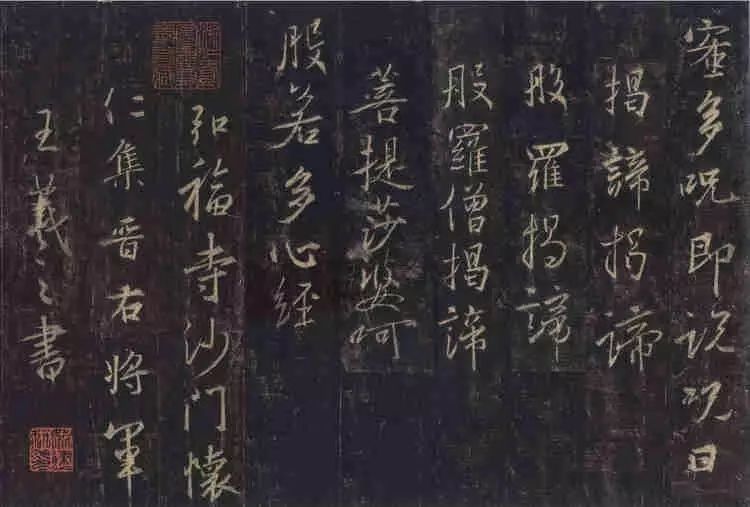 蜜多咒即说咒曰
揭諦揭諦
般羅揭諦
般羅僧揭諦
菩提莎婆呵
般若多心經
弘福寺沙門懷
仁集晉右將軍
王羲之書